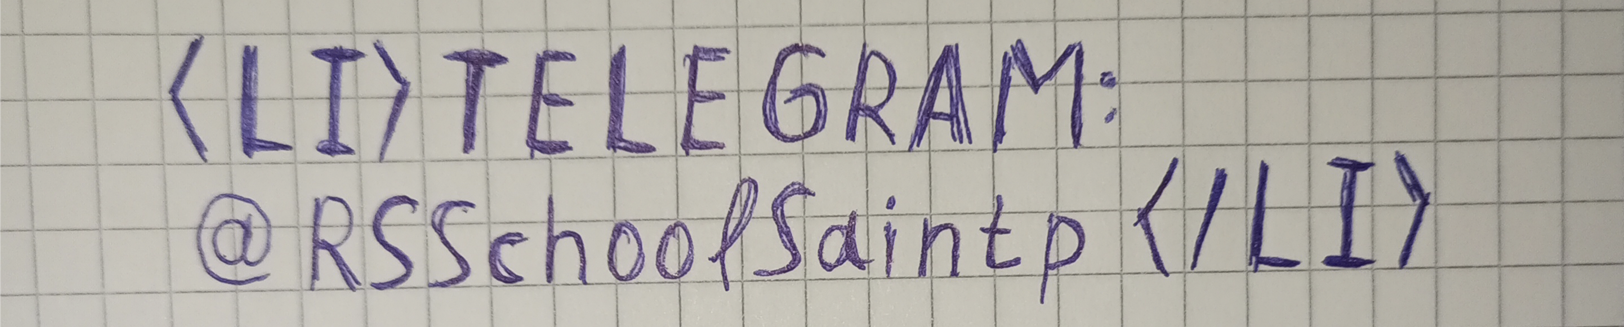 <LI>TELEGRAM:
@RSSchoolSaintp </LI>